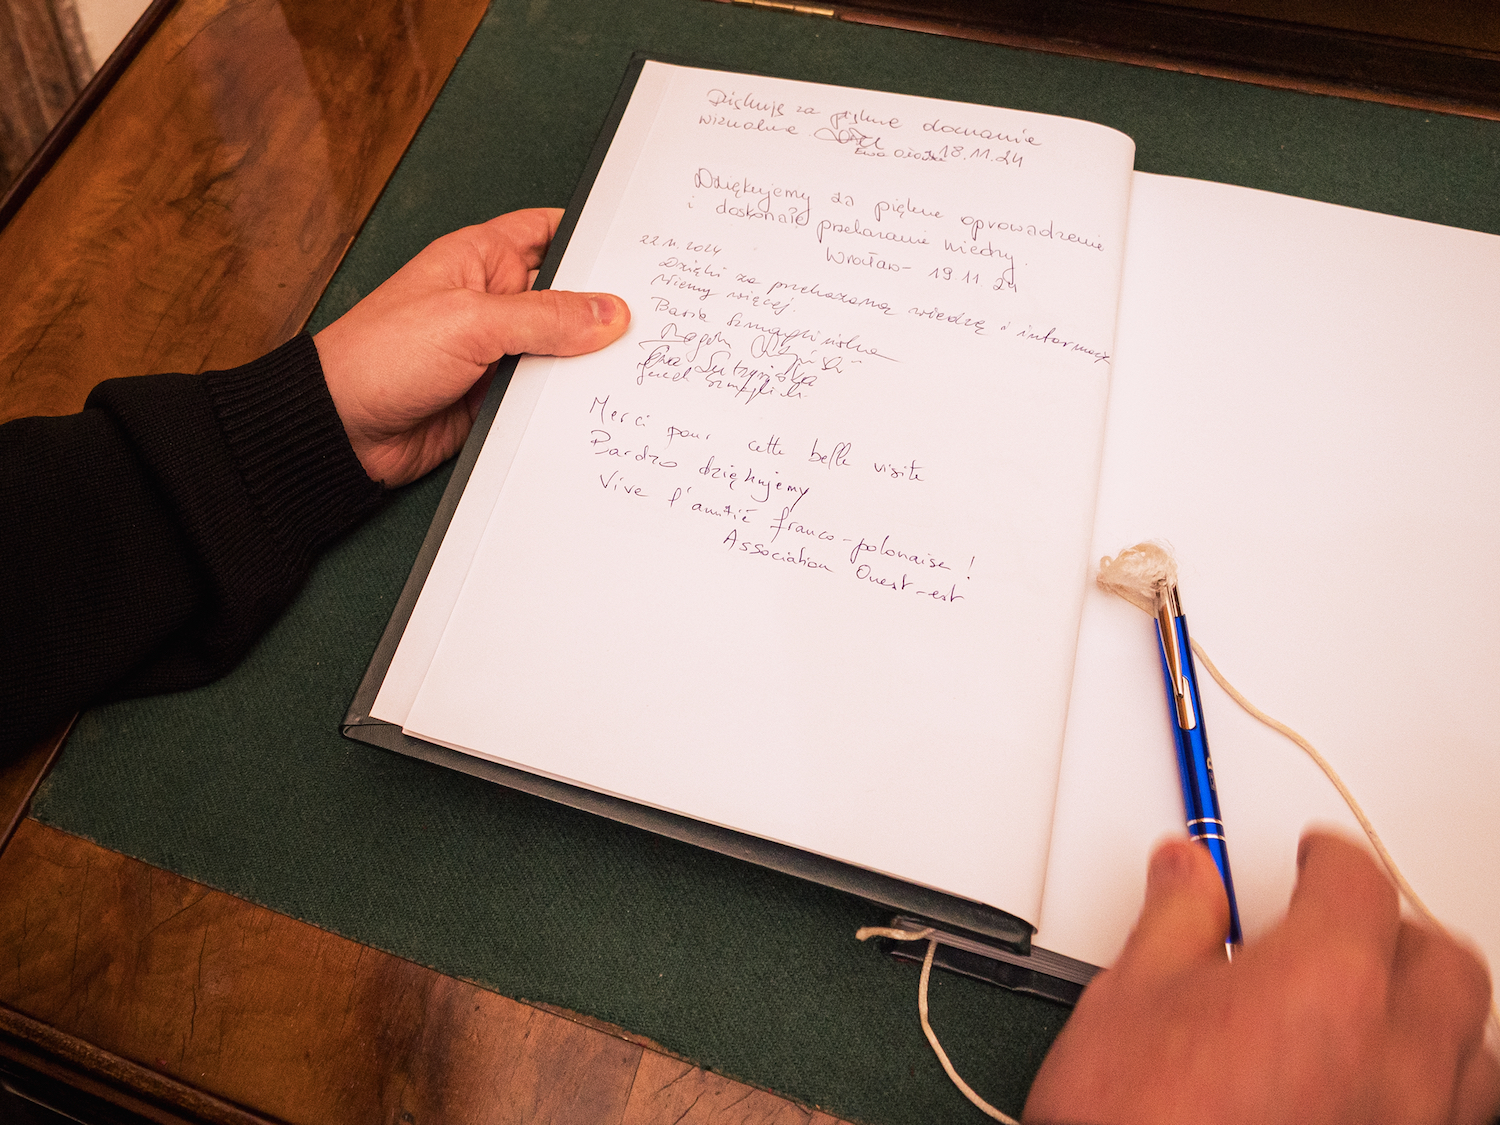 Dziękuję za piękne doznanie
wizualne
Ewa 18.11.24
Dziękujemy za piękne oprowadzenie
i doskonałe przekazanie wiedzy.
Wrocław - 19.11.24
22.11.2024
Dzięki za przekazaną wiedzę i informacje
Wiemy więcej.
Basia Szmajdzińska
Ewa
Jacek
Merci pour cette belle visite
Bardzo dziękujemy
Vive l'amitié franco-polonaise !
Association Ouest-est